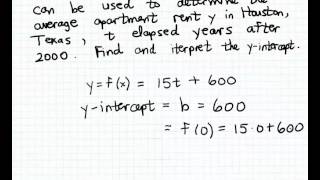 can be used to determine the
average apartment rent y in Houston,
Texas, t elapsed years after
2000. Find and iterpret the y-intercept.
y=f(x) = 15t + 600
y-intercept = b = 600
= f(0) = 15·0+600